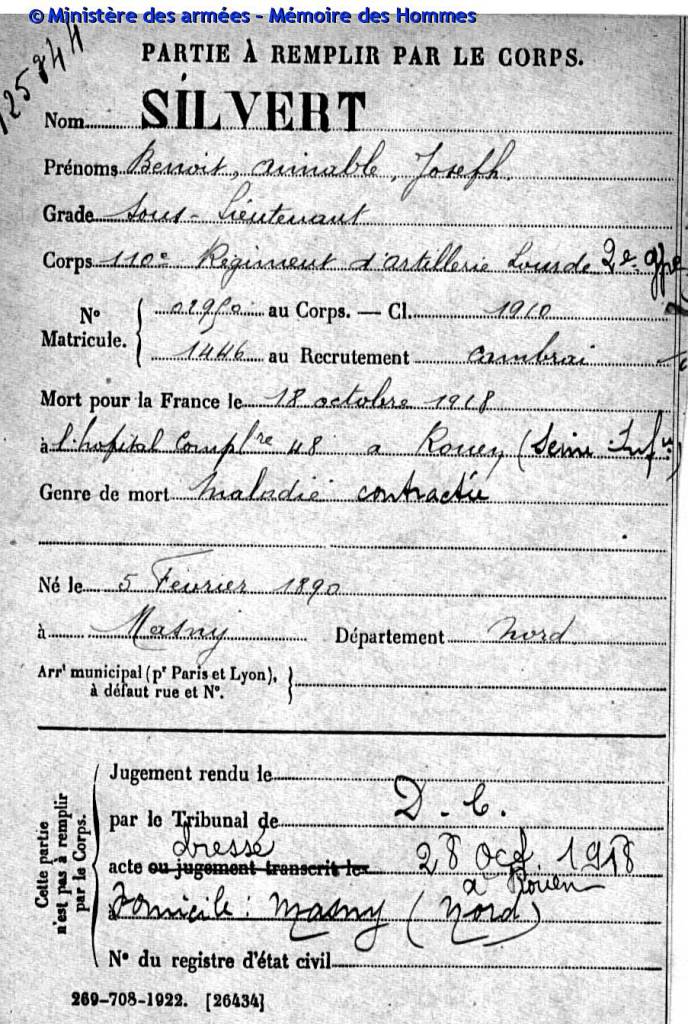 © Ministère des armées - Mémoire des Hommes
125844
PARTIE À REMPLIR PAR LE CORPS.
Nom SILVERT
Prénoms Benoit, aimable, Joseph.
Grade Sous-Lieutenant
Corps 110e Régiment d'artillerie Lourde 2e gpe
No Matricule. { 02950 au Corps. — Cl. 1910
1446 au Recrutement Cambrai
Mort pour la France le 18 octobre 1918
à l'hopital Complre 48 a Rouen (Seine Infre)
Genre de mort Maladie contractée
Né le 5 Février 1890
à Masny Département Nord
Arrt municipal (pr Paris et Lyon), à défaut rue et No. }
Cette partie n'est pas à remplir par le Corps.
Jugement rendu le
par le Tribunal de D. C.
dressé
acte ou jugement transcrit le 28 Oct. 1918
a Rouen
à Domicile : Masny (Nord)
No du registre d'état civil
269-708-1922. [26434]